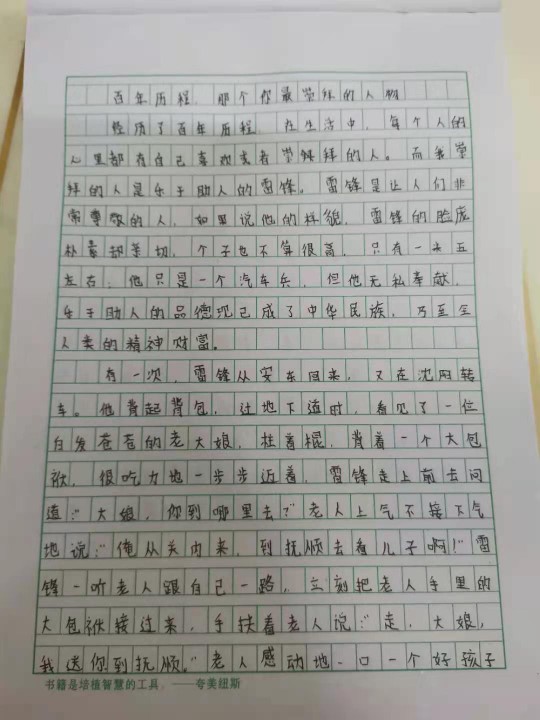 百年历程，那个你最崇拜的人物
经历了百年历程，在生活中，每个人的
心里都有自己喜欢或者崇拜的人。而我崇
拜的人是乐于助人的雷锋。雷锋是让人们非
常尊敬的人，如果说他的样貌，雷锋的脸庞
朴素却亲切，个子也不算很高，只有一米五
左右，他只是一个汽车兵，但他无私奉献，
乐于助人的品德现已成了中华民族，乃至全
人类的精神财富。
有一次，雷锋从安东回来，又在沈阳转
车。他背起背包，过地下道时，看见了一位
白发苍苍的老大娘，柱着棍，背着一个大包
袱，很吃力地一步步迈着，雷锋走上前去问
道："大娘，你到哪里去？"老人上气不接下气
地说："俺从关内来，到抚顺去看儿子啊！"雷
锋一听老人跟自己一路，立刻把老人手里的
大包袱接过来，手扶着老人说："走，大娘，
我送你到抚顺。"老人感动地一口一个好孩子
书籍是培植智慧的工具。——夸美纽斯